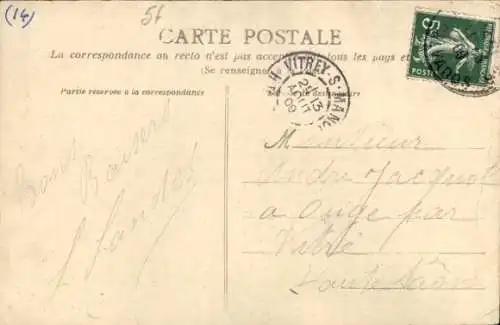 (14)
5f
CARTE POSTALE
La correspondance au recto n'est pas acceptée tous les pays
(Se renseigner
Partie réservée à la correspondance
VITREY-S-MANCE
21-13
AOUT
09
5
Bons
Baisers
Monsieur
André Jacquot
a Ouge par
Vitré
Haute Saône